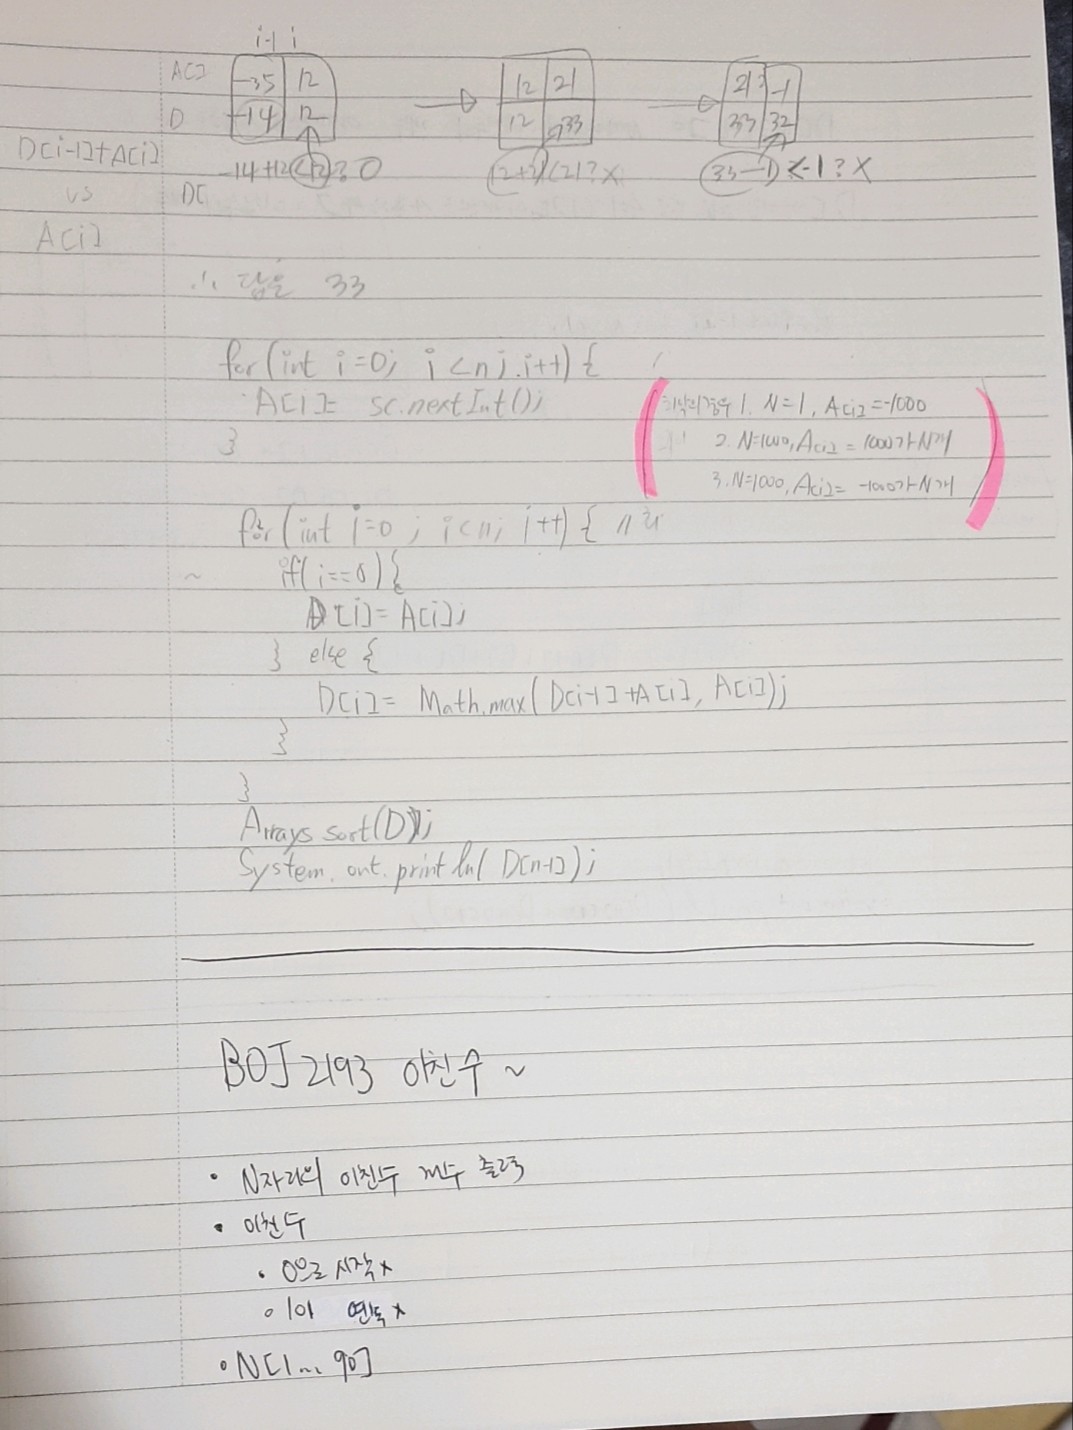 i-1 i
A[] -35 12 → 12 21 → 21 -1
D -14 12 12 33 33 32
D[i-1]+A[i] -14+12<12?O (12+21)<21?X (33-1)<-1?X
vs D[
A[i]
∴ 답은 33
for(int i=0; i<n; i++){
A[i]= sc.nextInt();
}
최악의경우 1. N=1, A[i]=-1000
2. N=1000, A[i] = 1000가 N개
3. N=1000, A[i]= -1000가 N개
for(int i=0; i<n; i++){
~ if(i==0){
D[i]=A[i];
} else {
D[i]= Math.max(D[i-1]+A[i], A[i]);
}
}
Arrays.sort(D);
System.out.println(D[n-1]);
BOJ 2193 이친수 ~
• N자리의 이친수 개수 출력
• 이친수
• 0으로 시작x
• 1이 연속x
• N[1... 90]